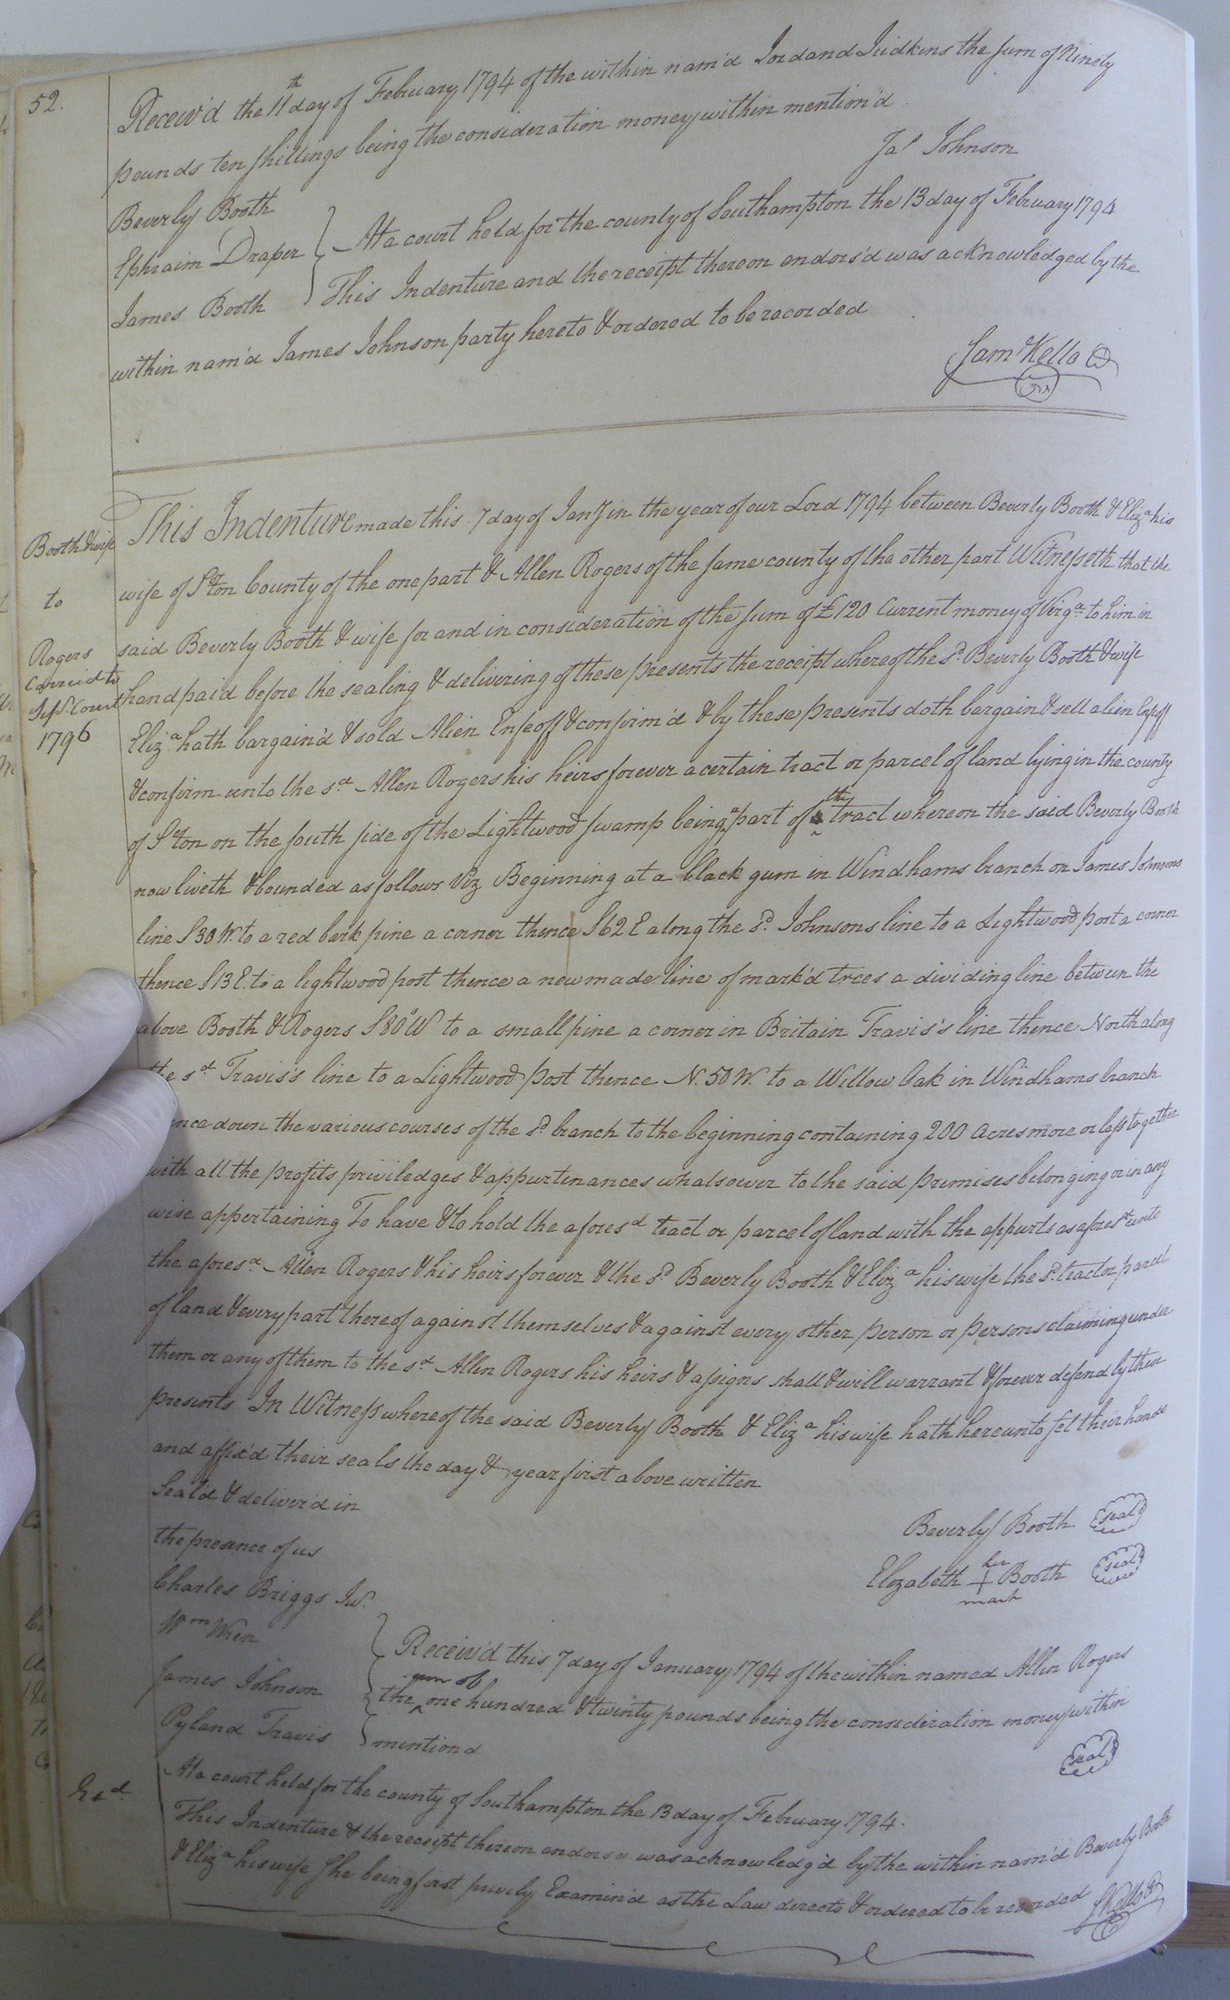 52.
Receiv'd the 11th day of February 1794 of the within nam'd Jordand Judkins the sum of Ninely
pounds ten shillings being the consideration money within mention'd
Jas Johnson
Beverly Booth
Ephraim Draper
James Booth
At a court held for the county of Southampton the 13 day of February 1794
This Indenture and the receipt thereon endors'd was acknowledged by the
within nam'd James Johnson party hereto & ordered to be recorded
Saml Kello
Booth & wife
to
Rogers
Carried to
Sept. Court
1796
This Indenture made this 7 day of Jany in the year of our Lord 1794 between Beverly Booth & Eliza his
wife of S'ton County of the one part & Allen Rogers of the same county of the other part Witnesseth that the
said Beverly Booth & wife for and in consideration of the sum of £120 Current money of Virga. to him in
hand paid before the sealing & delivering of these presents the receipt whereof the sd. Beverly Booth & wife
Eliza hath bargain'd & sold Alien Enfeoff & confirm'd & by these presents doth bargain & sell alien Enfeoff
& confirm unto the sd. Allen Rogers his heirs forever a certain tract or parcel of land lying in the county
of S'ton on the south side of the Lightwood swamp being a part of the tract whereon the said Beverly Booth
now liveth & bounded as follows Viz Beginning at a black gum in Windhams branch on James Johnsons
line S 30 W. to a red bark pine a corner thence S 62 E along the sd. Johnsons line to a Lightwood post a corner
thence S 13 E. to a lightwood post thence a new made line of mark'd trees a dividing line between the
above Booth & Rogers S 80° W to a small pine a corner in Britain Travis's line thence North along
the sd Travis's line to a Lightwood post thence N. 50 W. to a Willow Oak in Windhams branch
thence down the various courses of the sd. branch to the beginning containing 200 Acres more or less together
with all the profits priviledges & appurtenances whatsover to the said premises belonging or in any
wise appertaining To have & to hold the aforesd tract or parcel of land with the appurts as aforesd unto
the aforesd. Allen Rogers & his heirs forever & the sd. Beverly Booth & Eliza his wife the sd. tract or parcel
of land & every part thereof against themselves & against every other person or persons claiming under
them or any of them to the sd. Allen Rogers his heirs & assigns shall & will warrant & forever defend by these
presents In Witness whereof the said Beverly Booth & Eliza his wife hath hereunto set their hands
and affix'd their seals the day & year first above written
Seal'd & deliver'd in
the presence of us
Charles Briggs Jur.
Wm Wren
James Johnson
Pyland Travis
Beverly Booth seal
Elizabeth her + mark Booth seal
Receiv'd this 7 day of January 1794 of the within named Allen Rogers
the sum of one hundred & twinty pounds being the consideration money within
mentiond
seal
Exd.
At a court held for the county of Southampton the 13 day of February 1794.
This Indenture & the receipt thereon endorsd was acknowledg'd by the within nam'd Beverly Booth
& Eliza his wife she being first privily Examin'd as the Law directs & ordered to be recorded S Kello